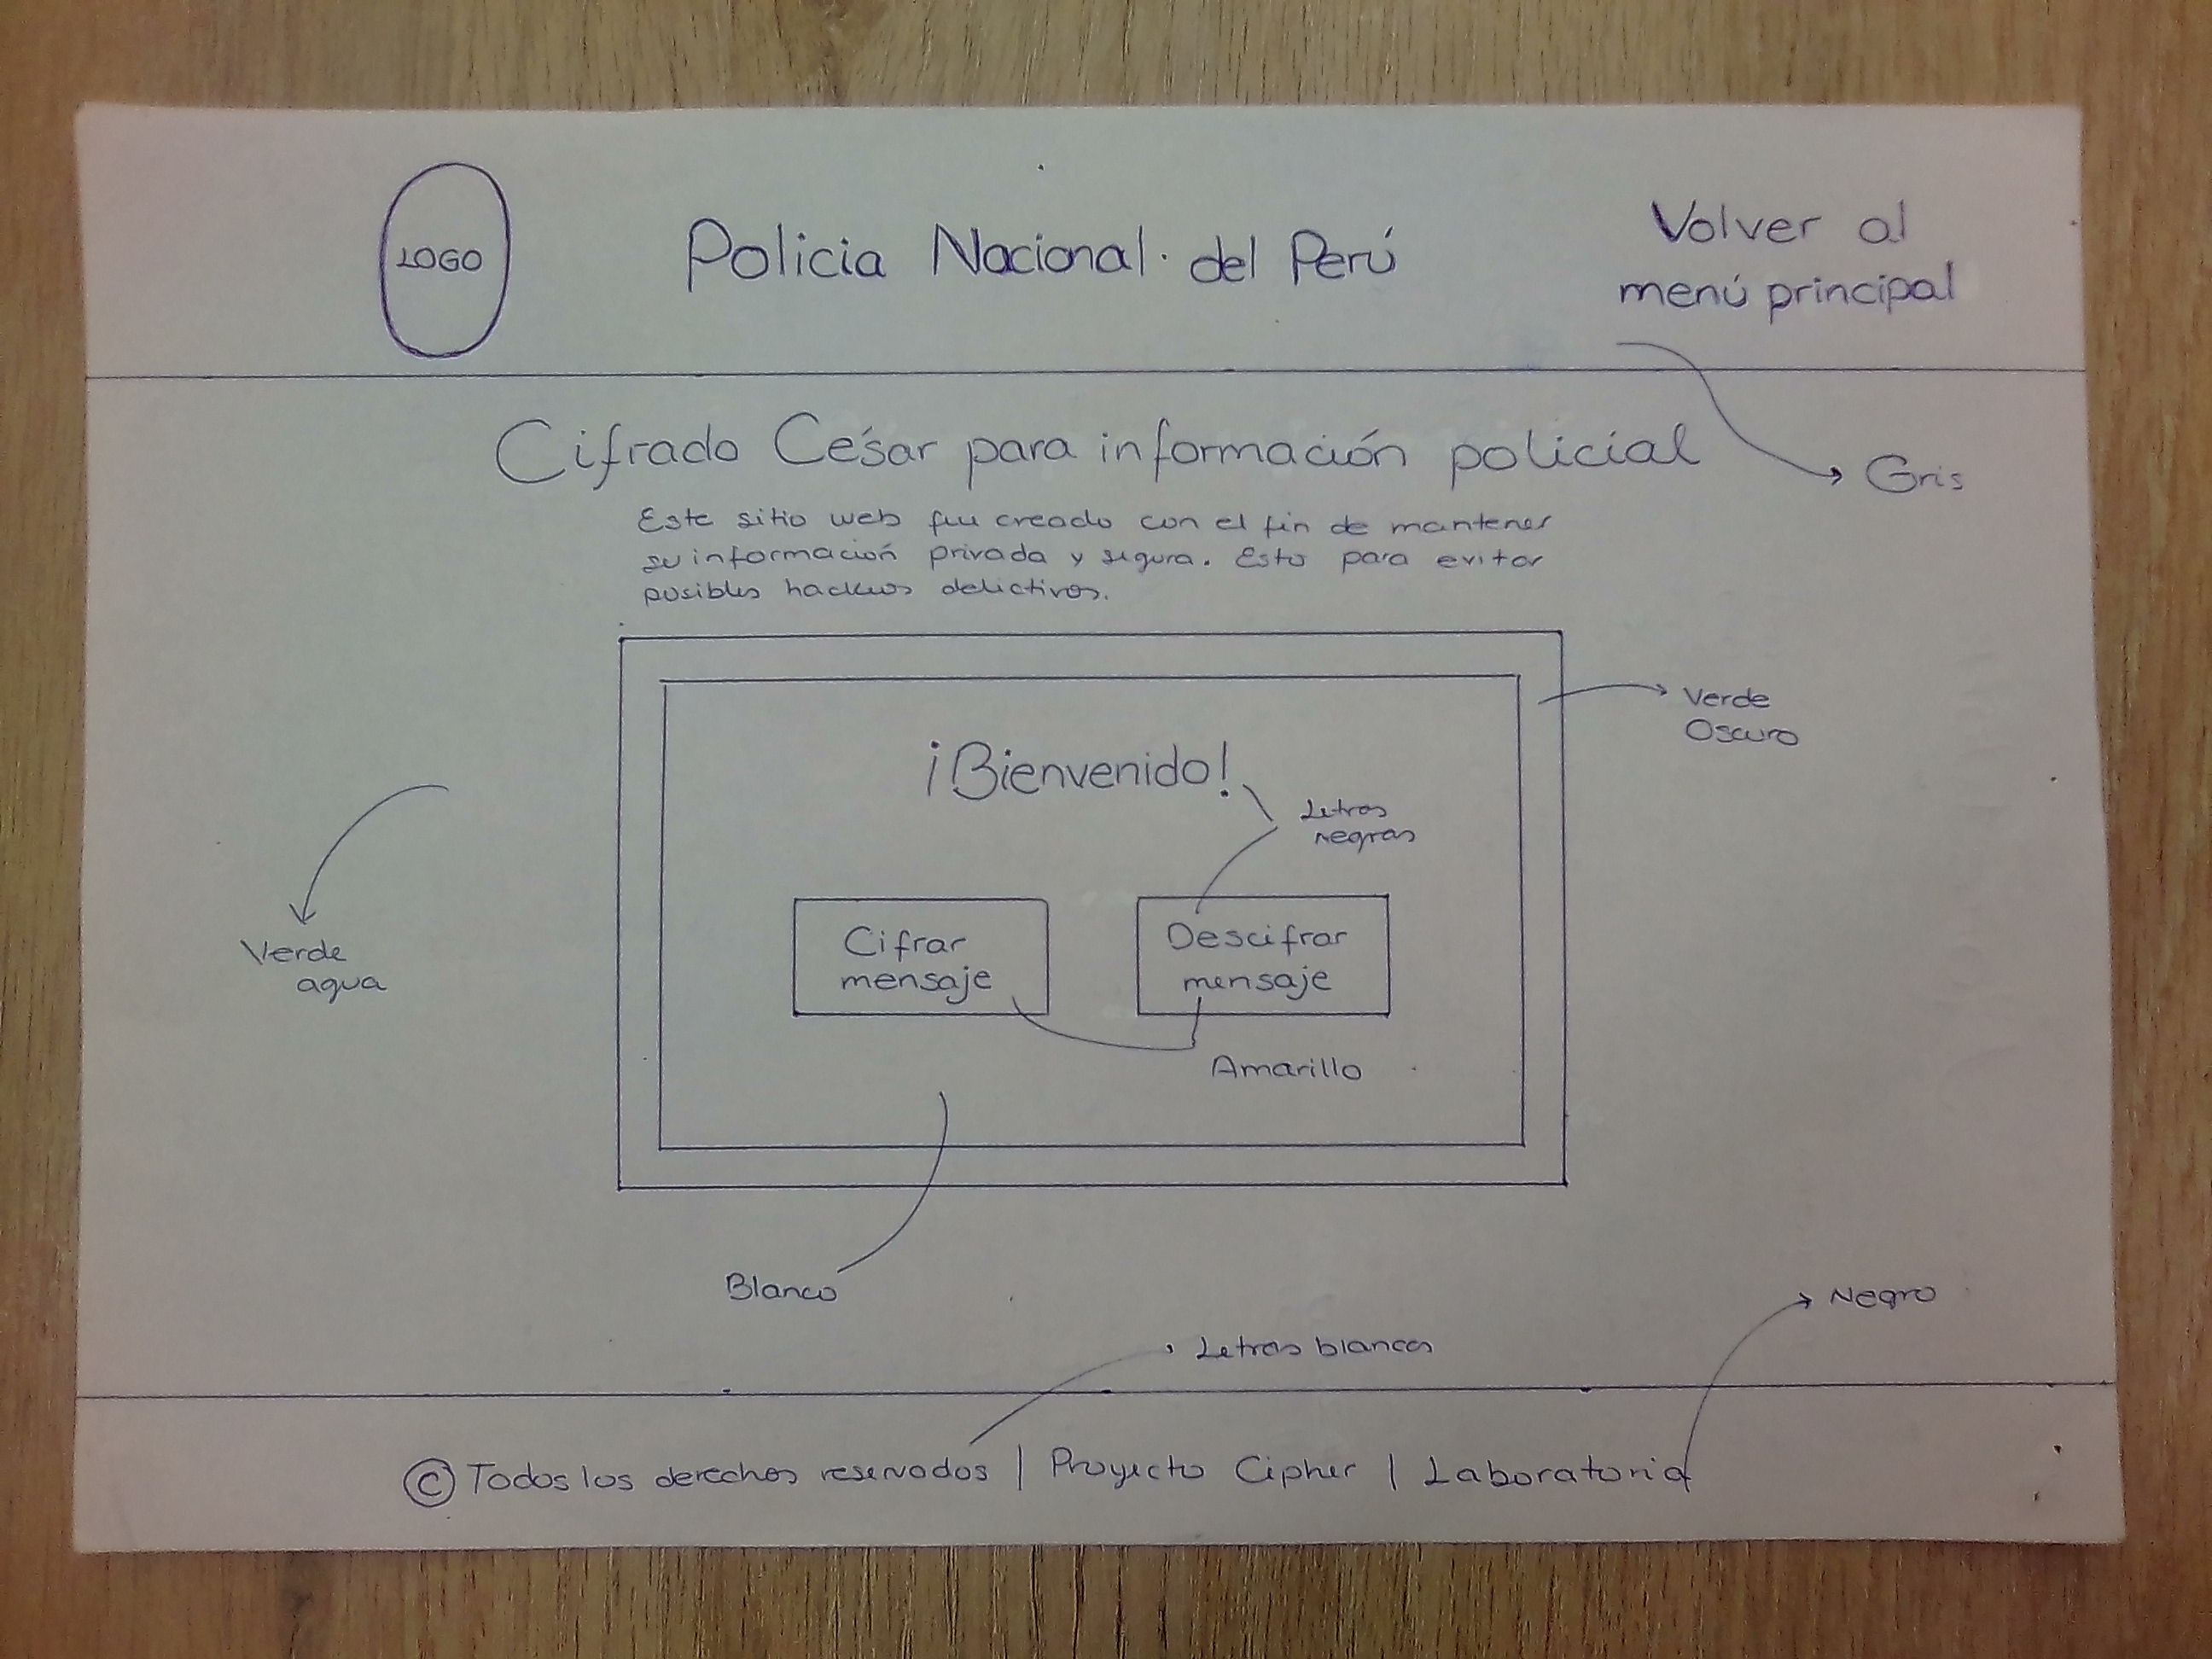 LOGO
Policia Nacional del Perú
Volver al
menú principal
Cifrado César para información policial
Gris
Este sitio web fue creado con el fin de mantener
su información privada y segura. Esto para evitar
posibles hackeos delictivos.
Verde
Oscuro
¡Bienvenido!
Letras
negras
Cifrar
mensaje
Descifrar
mensaje
Verde
agua
Amarillo
Blanco
Negro
Letras blancas
© Todos los derechos reservados | Proyecto Cipher | Laboratoria